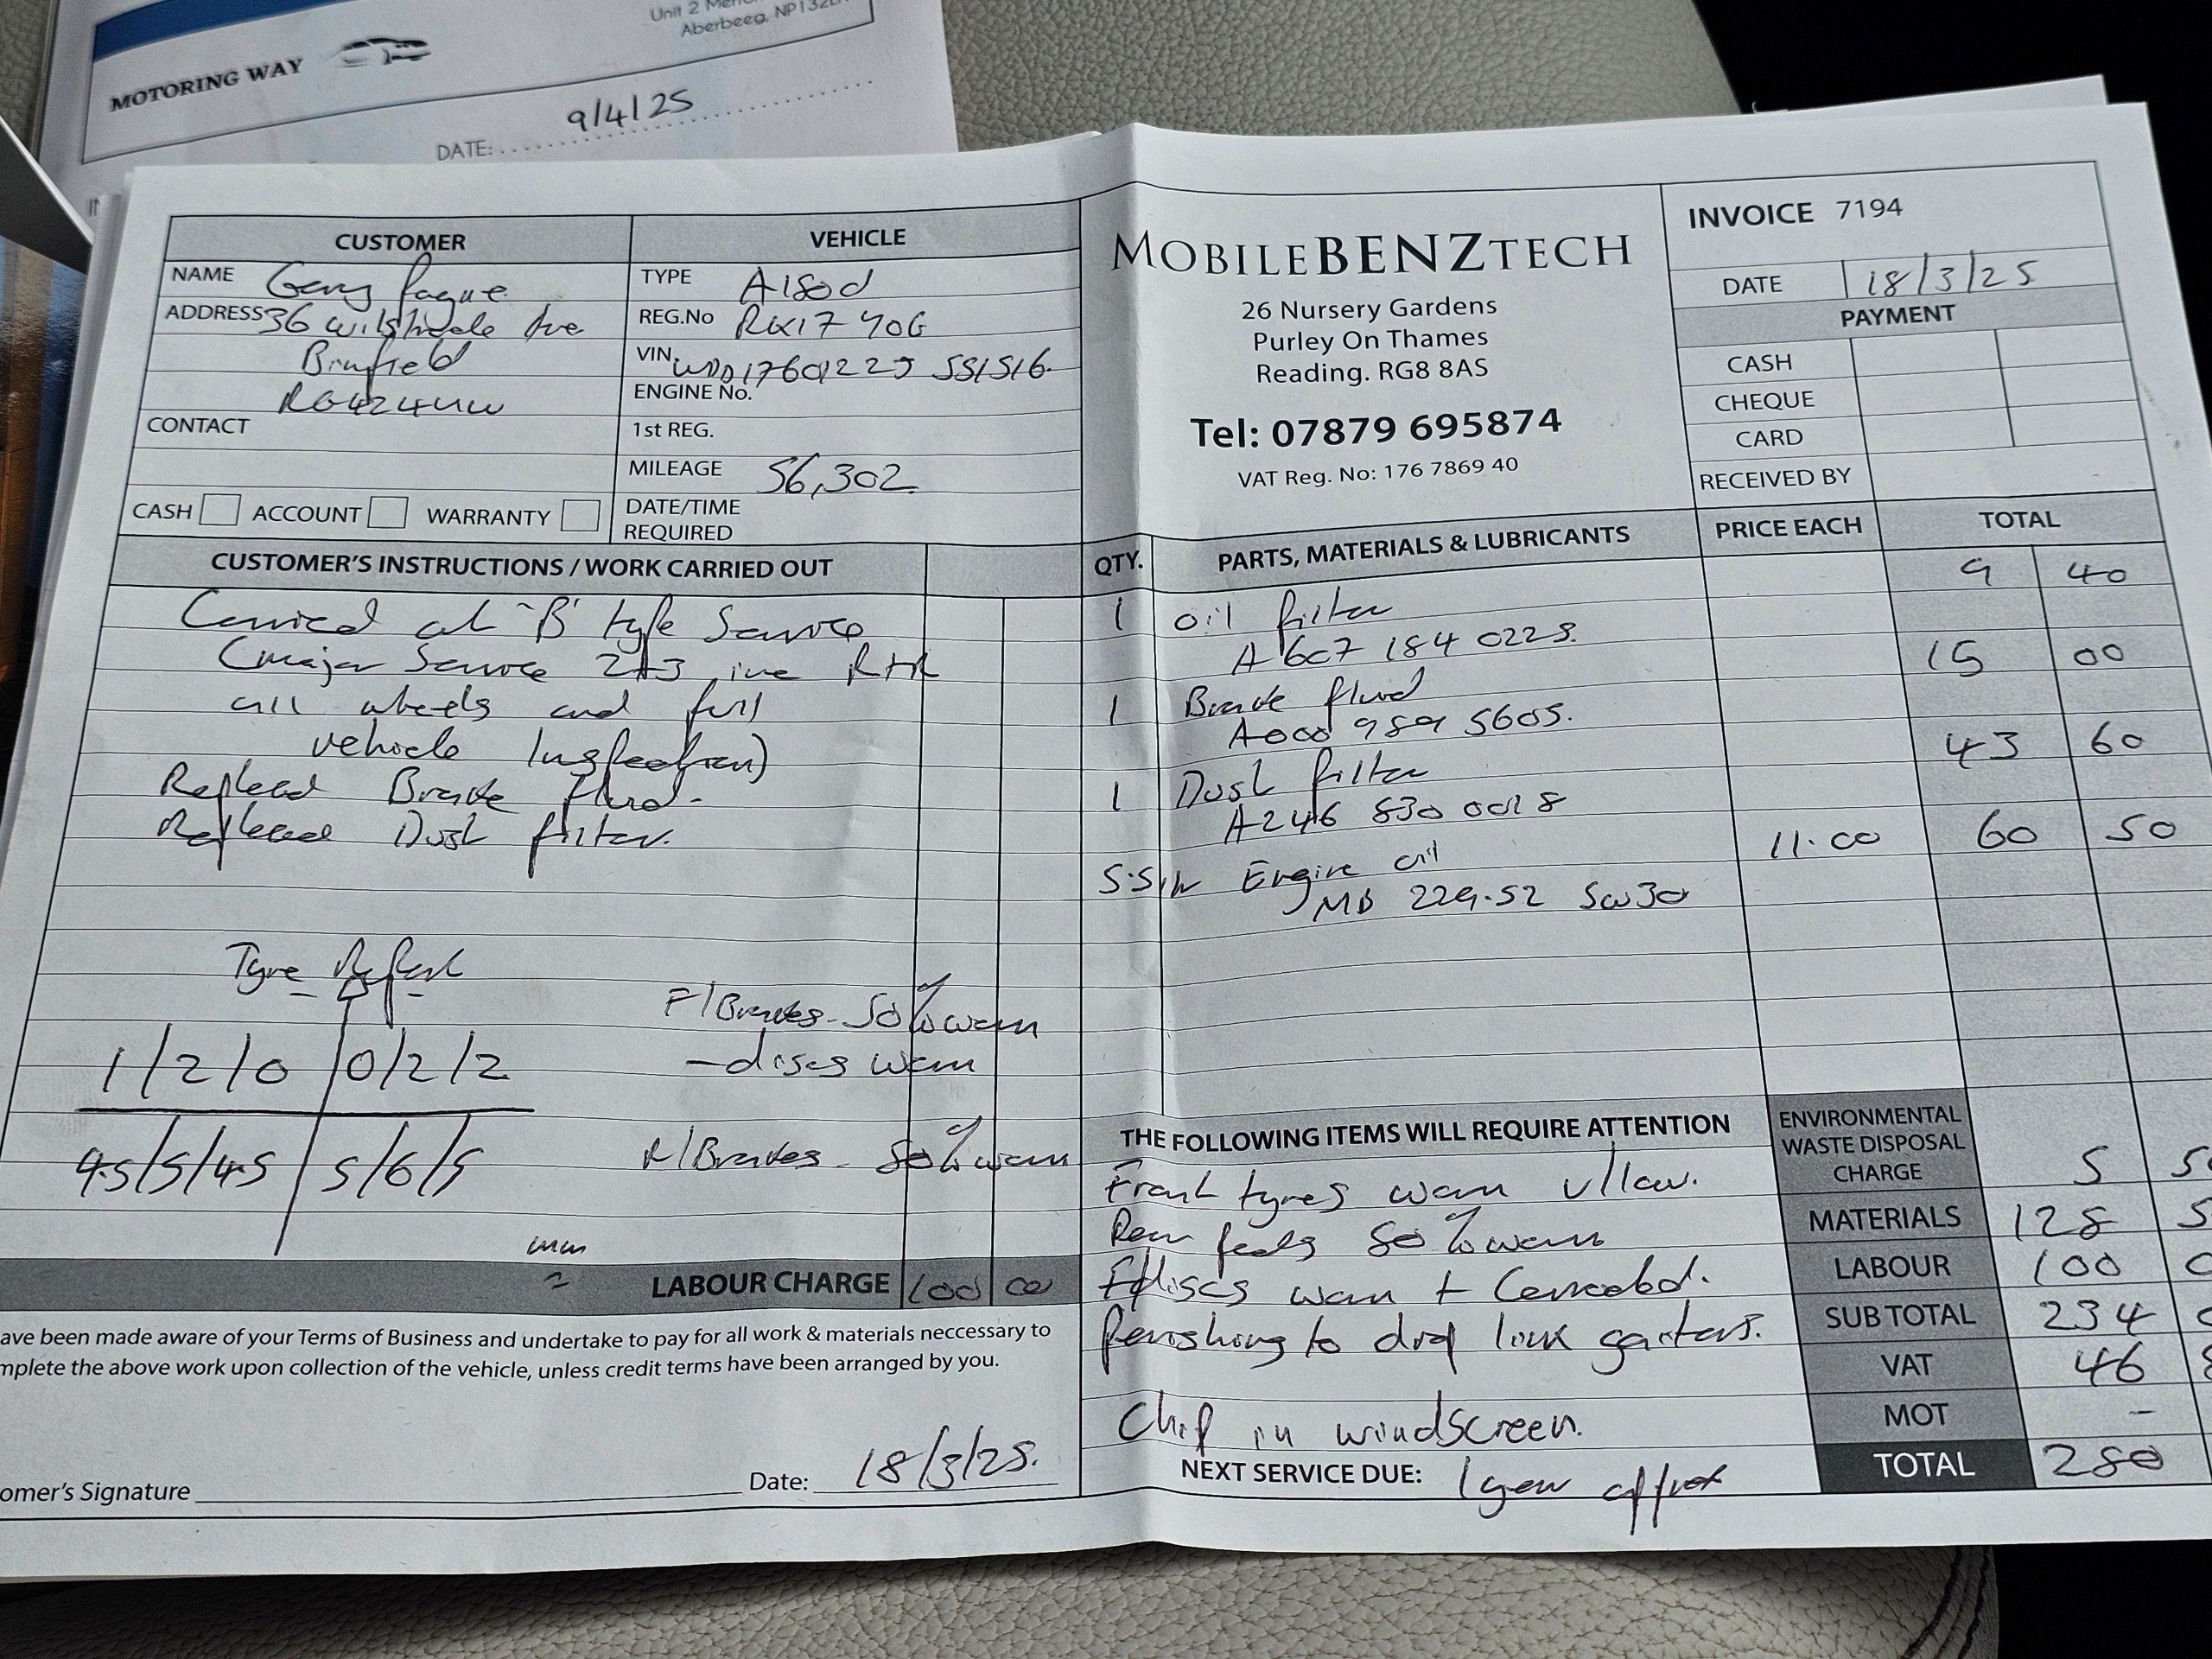 Unit 2
Aberbeeg, NP132
MOTORING WAY
DATE: 9/4/25
CUSTOMER
NAME Gary Pague
ADDRESS 36 Ave
RG424UW
CONTACT
CASH ACCOUNT WARRANTY
VEHICLE
TYPE A180d
REG.No 17 YOG
VIN. WDD1760122J 551516.
ENGINE No.
1st REG.
MILEAGE 56,302.
DATE/TIME
REQUIRED
MOBILEBENZTECH
26 Nursery Gardens
Purley On Thames
Reading. RG8 8AS
Tel: 07879 695874
VAT Reg. No: 176 7869 40
INVOICE 7194
DATE 18/3/25
PAYMENT
CASH
CHEQUE
CARD
RECEIVED BY
CUSTOMER'S INSTRUCTIONS / WORK CARRIED OUT
Carried out 'B' type Service
(major Service 2+3 inc R+R
all wheels and full
vehicle Inspection)
Replaced Brake fluid.
Replaced Dust filter.
Tyre Report
1/2/0 0/2/2
4.5/5/4.5 5/6/5
mm
F/Brakes - 50% worn
- discs worn
R/Brakes - 80% worn
LABOUR CHARGE 100 00
ave been made aware of your Terms of Business and undertake to pay for all work & materials neccessary to
mplete the above work upon collection of the vehicle, unless credit terms have been arranged by you.
omer's Signature Date: 18/3/25.
QTY. PARTS, MATERIALS & LUBRICANTS PRICE EACH TOTAL
1 oil filter 9 40
A 607 184 0225.
1 Brake fluid 15 00
A000 989 5605.
1 Dust filter 43 60
A246 830 0018
5.5 Ltr Engine oil 11.00 60 50
MB 229.52 5w30
THE FOLLOWING ITEMS WILL REQUIRE ATTENTION
Front tyres worn v/low.
Rear pads 80% worn
F/discs worn + Corroded.
Perishing to drop link gaiters.
Chip in windscreen.
NEXT SERVICE DUE: 1 year approx
ENVIRONMENTAL
WASTE DISPOSAL
CHARGE 5 5
MATERIALS 128 5
LABOUR 100 0
SUB TOTAL 234 0
VAT 46 8
MOT -
TOTAL 280